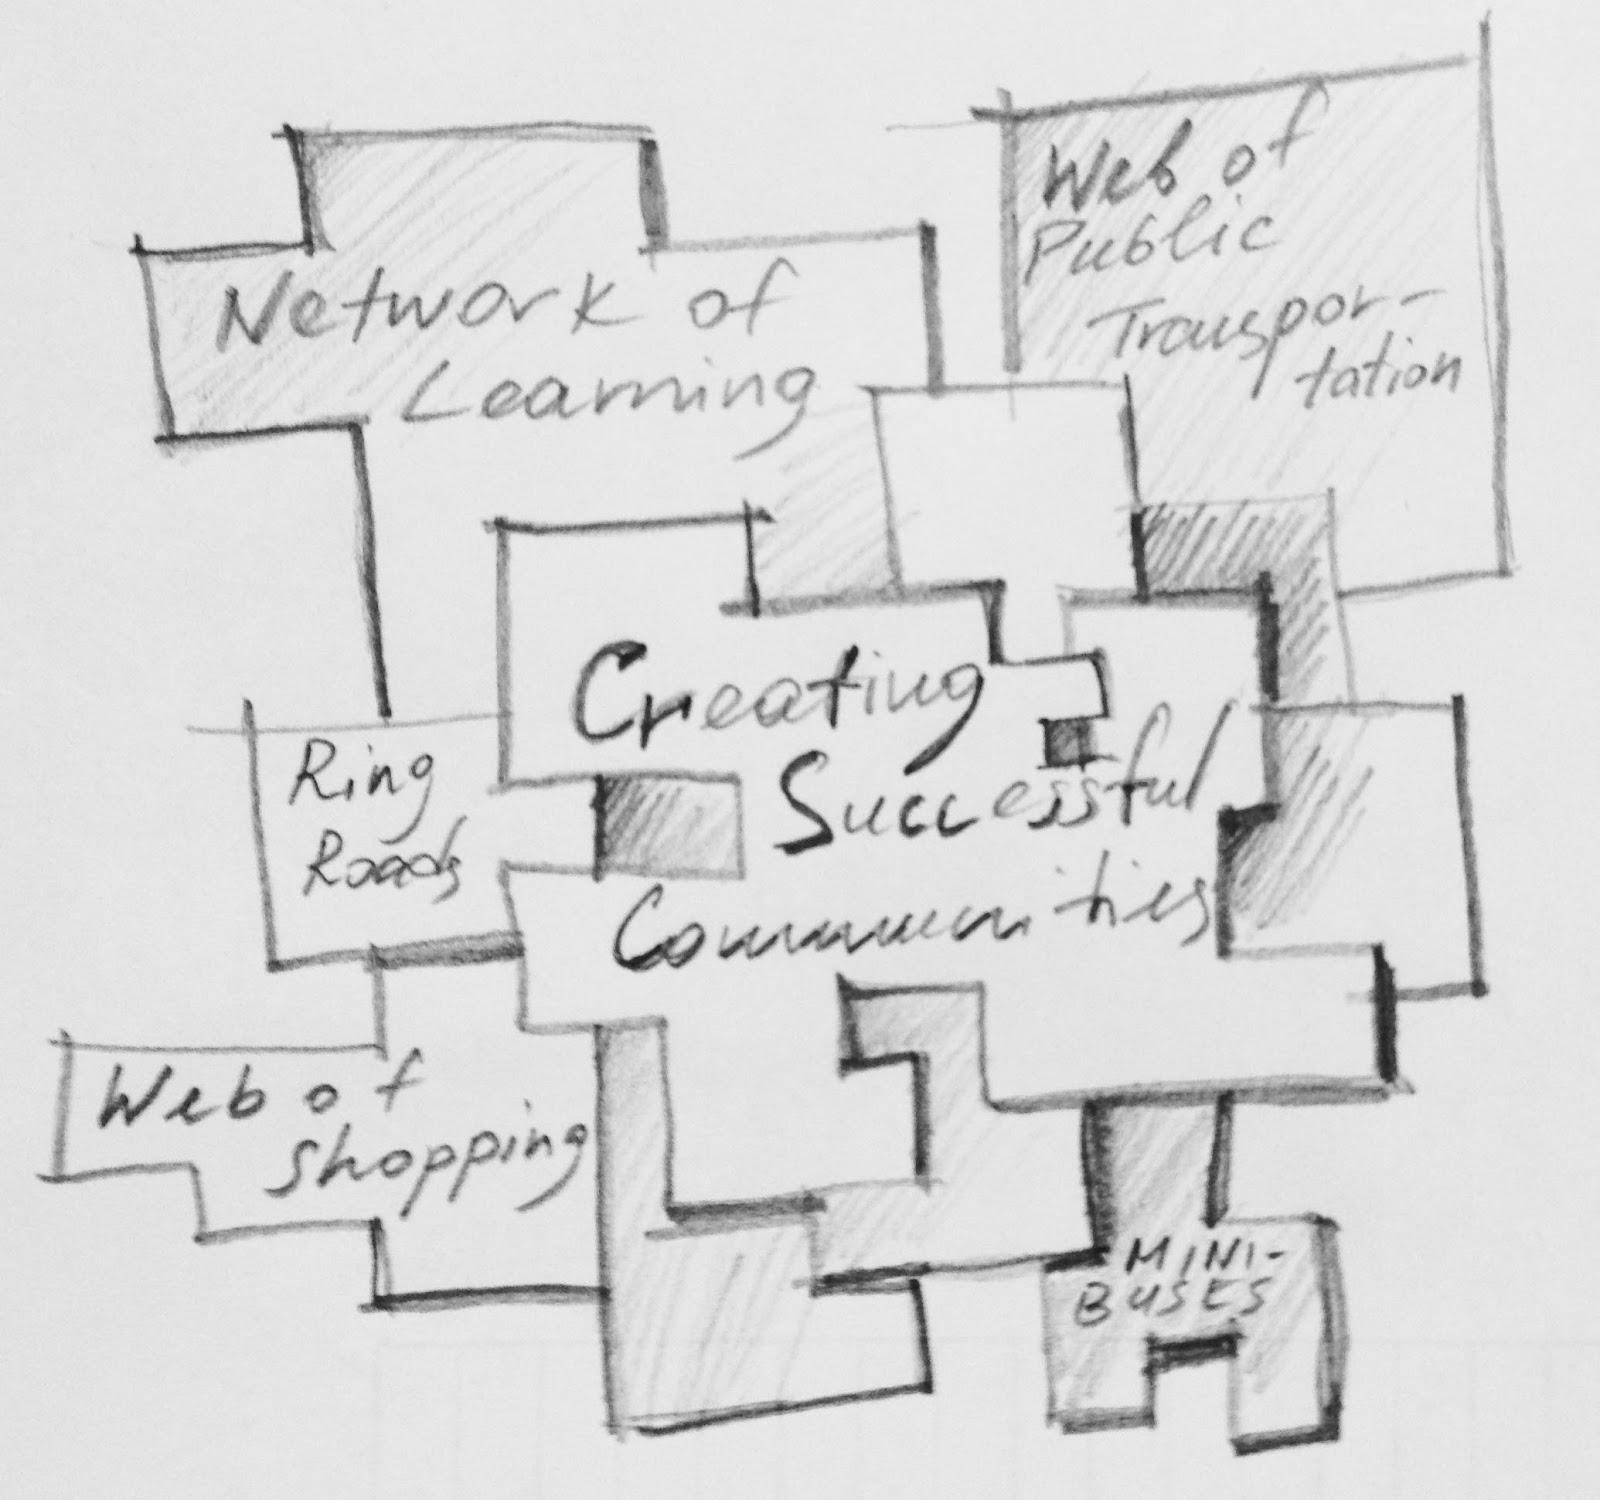 Network of
Learning
Web of
Public
Transpor-
tation
Creating
Successful
Communities
Ring
Roads
Web of
Shopping
MINI-
BUSES